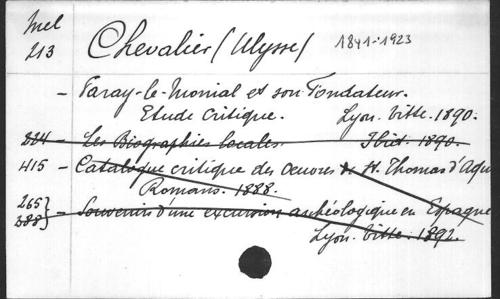 Mel
213
Chevalier (Ulysse) 1841-1923
- Paray-le-Monial et son Fondateur.
Etude critique. Lyon. Vitte. 1890.
224 - Les Biographies locales. Ibid. 1890.
415 - Catalogue critique des Oeuvres de St. Thomas d'Aqu
Romans. 1888.
265
388 } - Souvenirs d'une excursion archéologique en Espagne
Lyon. Vitte. 1892.